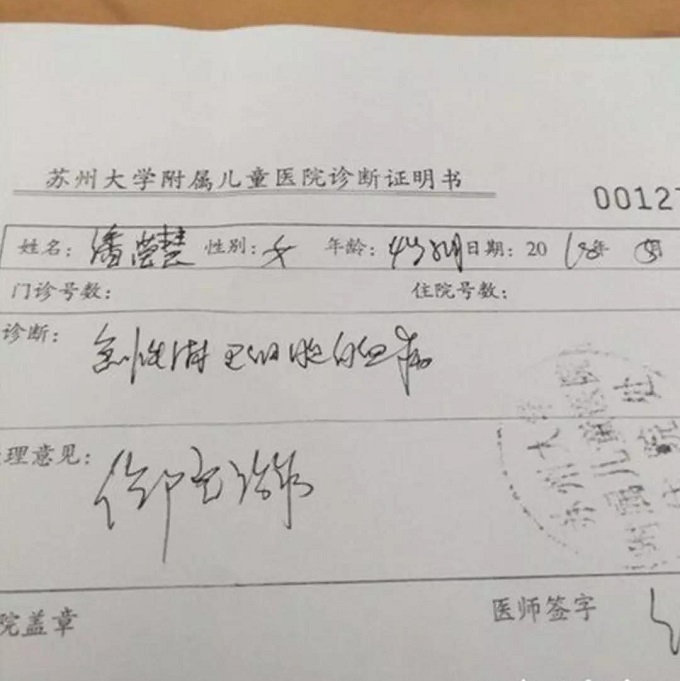 苏州大学附属儿童医院诊断证明书
0012
姓名：潘莹慧 性别：女 年龄：4岁 日期：20
门诊号数： 住院号数：
诊断：急性淋巴细胞白血病
理意见：住院治疗
苏州大学
附属儿童医院
住院
院盖章 医师签字